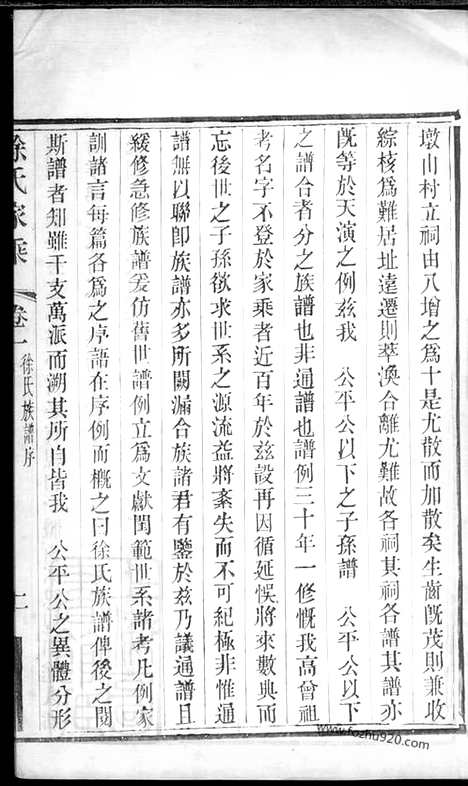 墩山村立祠由八增之爲十是尤散而加散矣生齒旣茂則兼收
綜核爲難居址遠遷則萃渙合離尤難故各祠其祠各譜其譜亦
旣等於天演之例茲我　公平公以下之子孫譜　公平公以下
之譜合者分之族譜也非通譜也譜例三十年一修慨我高曾祖
考名字不登於家乘者近百年於茲設再因循延悞將來數典而
忘後世之子孫欲求世系之源流益將紊失而不可紀極非惟通
譜無以聯卽族譜亦多所闕漏合族諸君有鑒於茲乃議通譜且
緩修急修族譜爰仿舊世譜例立爲文獻閫範世系諸考凡例家
訓諸言每篇各爲之序語在序例而概之曰徐氏族譜俾後之閱
斯譜者知雖千支萬派而溯其所自皆我　公平公之異體分形
徐氏家乘
卷一
徐氏族譜序
www.fozhu920.com